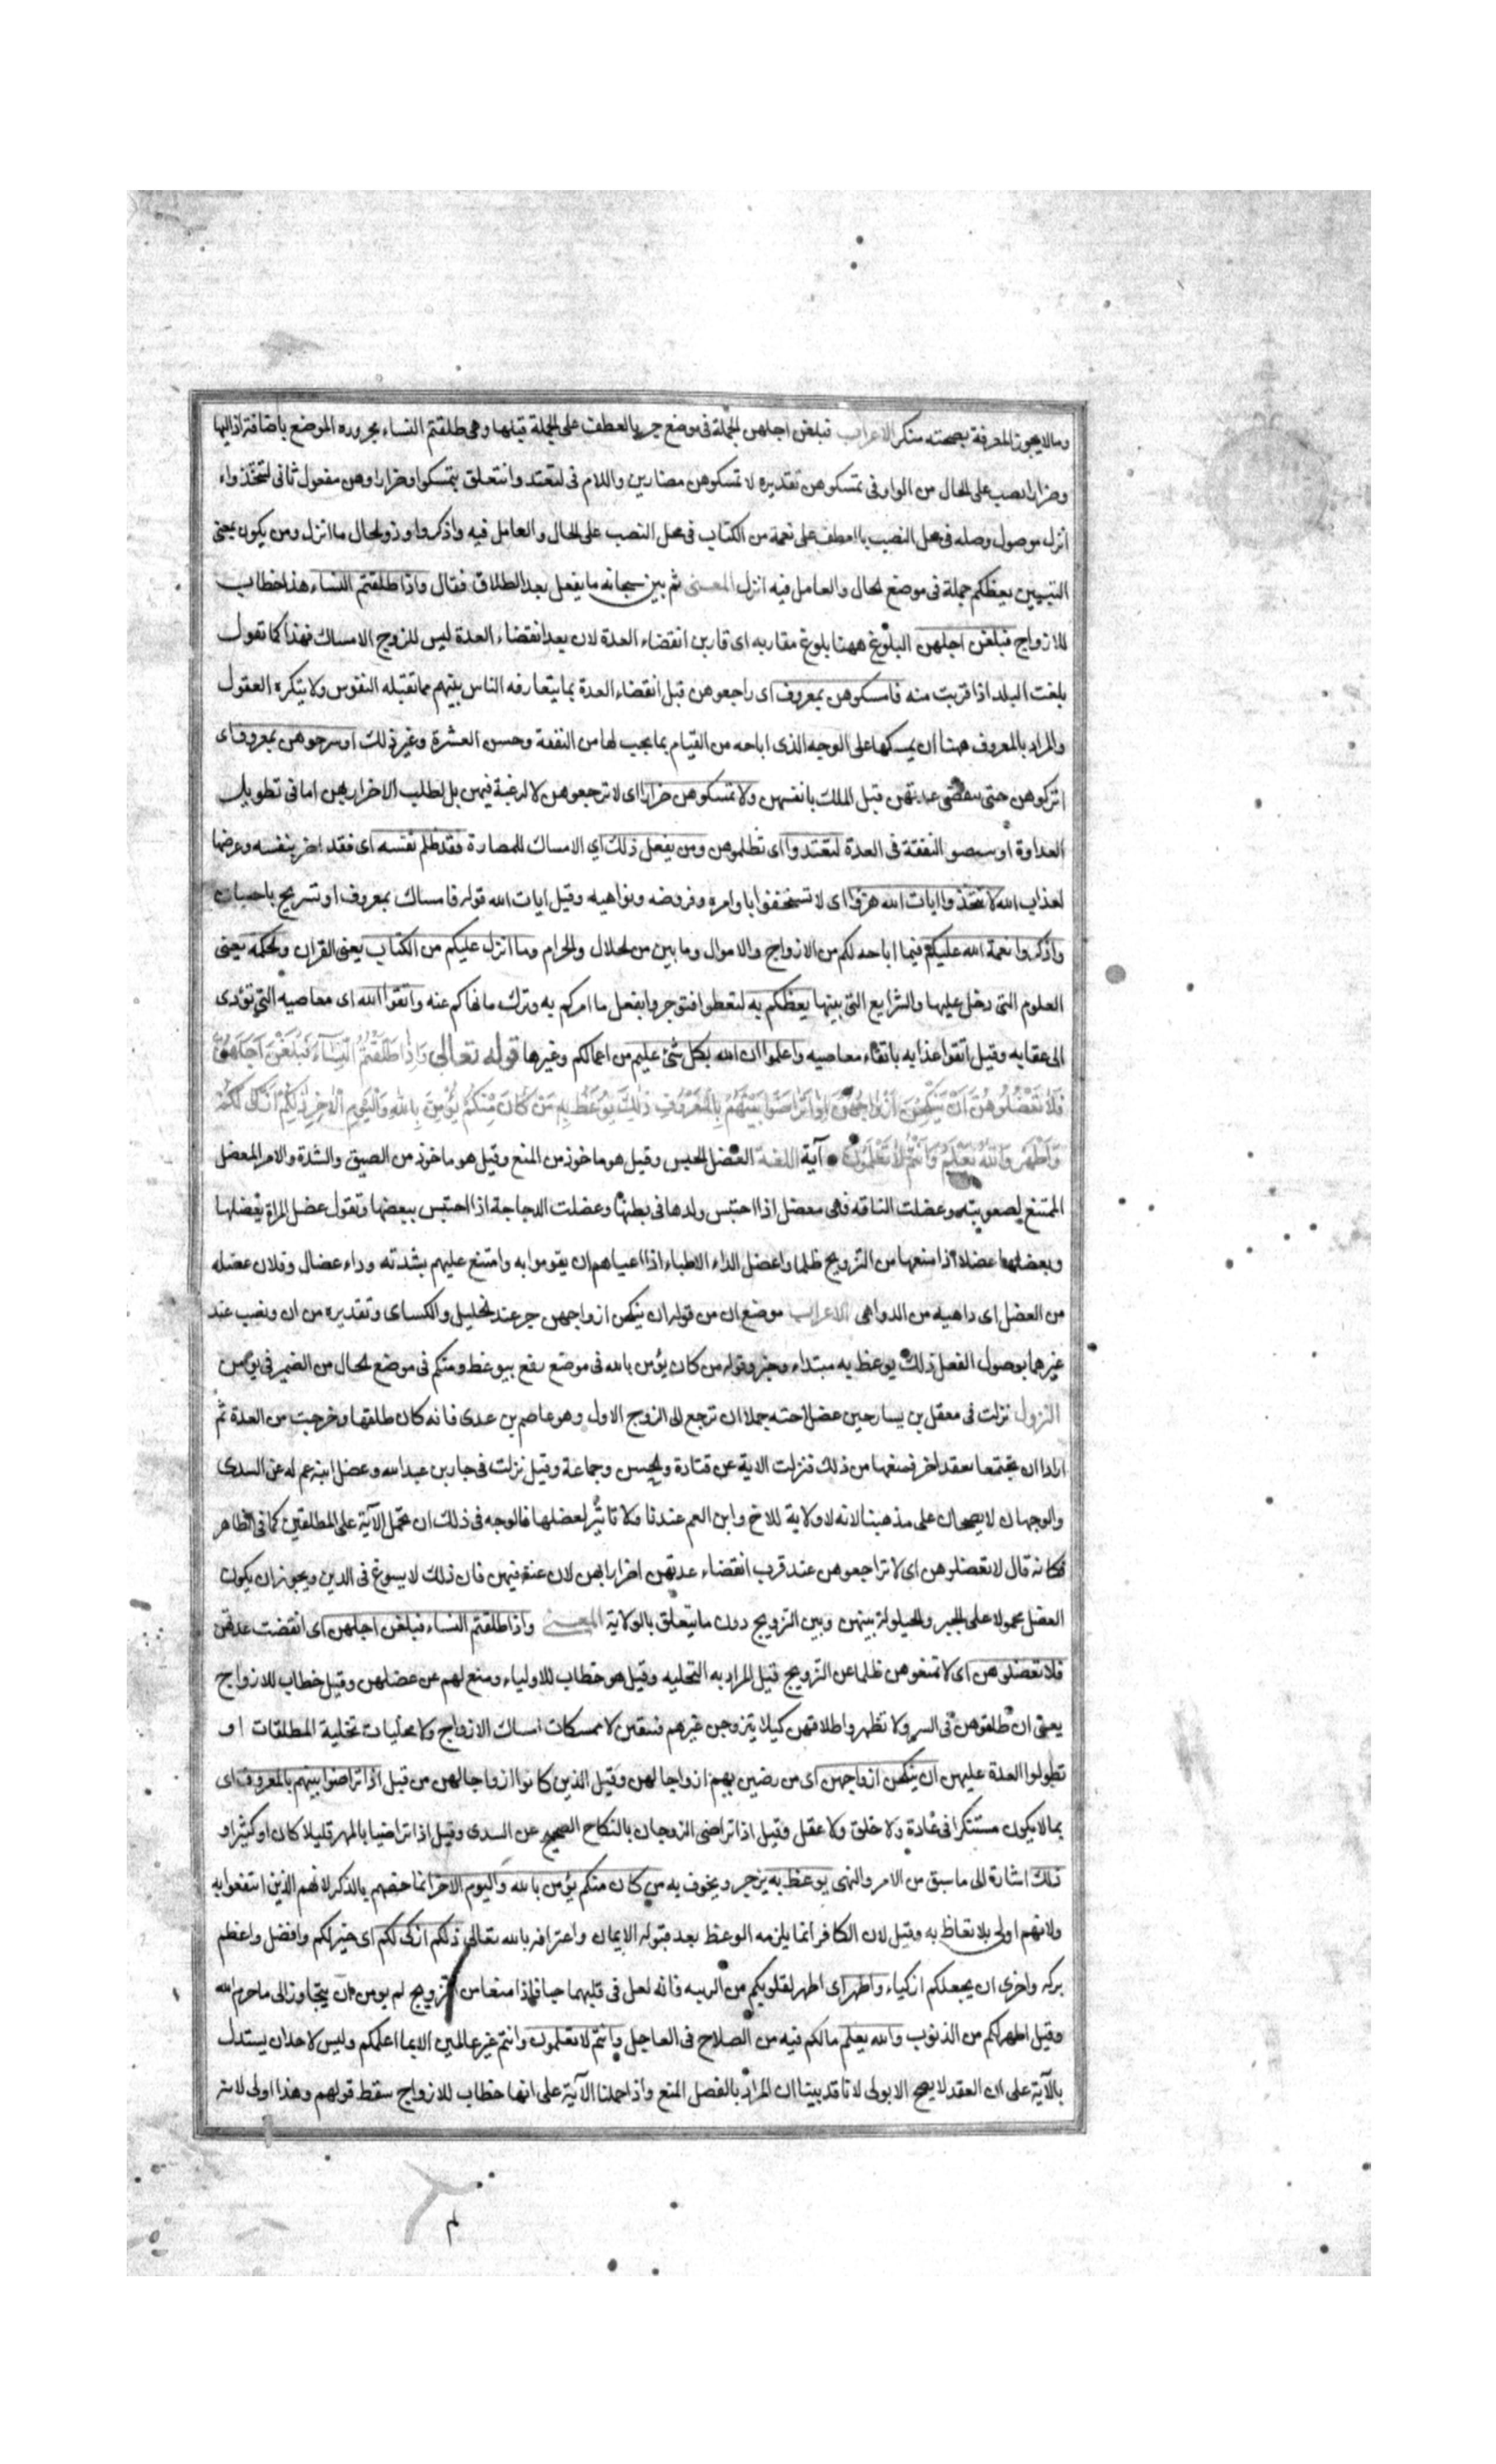 وما لا يجوز المعرفة بصحته منكر الاعراب فبلغن اجلهن الجملة فى موضع جر بالعطف على الجملة قبلها وهى طلقتم النساء مجرورة الموضع باضافة اذا اليها
وضرارا نصب على الحال من الواو فى تمسكوهن تقديره لا تمسكوهن مضارين واللام فى لتعتدوا تتعلق بتمسكوا وضرارا وهن مفعول ثانى لتتخذوا
انزل موصول وصله فى محل النصب بالعطف على نعمة من الكتاب فى محل النصب على الحال والعامل فيه واذكروا وذو الحال ما انزل ومن يكون بمعنى
التبيين يعظكم جملة فى موضع الحال والعامل فيه انزل المعنى ثم بين سبحانه ما يفعل بعد الطلاق فقال واذا طلقتم النساء هذا خطاب
للازواج فبلغن اجلهن البلوغ ههنا بلوغ مقاربه اى قاربن انقضاء العدة لان بعد انقضاء العدة ليس للزوج الامساك فهذا كما تقول
بلغت البلد اذا قربت منه فامسكوهن بمعروف اى راجعوهن قبل انقضاء العدة بما يتعارفه الناس بينهم مما تقبله النفوس ولا ينكره العقول
والمراد بالمعروف ههنا ان يمسكها على الوجه الذى اباحه من القيام بما يجب لها من النفقة وحسن العشرة وغير ذلك او سرحوهن بمعروف اى
اتركوهن حتى ينقضى عدتهن فيل الملك بانفسهن ولا تمسكوهن ضرارا اى لا تراجعوهن لا لرغبة فيهن بل لطلب الاضرار بهن اما فى تطويل
العداوة او بتضيق النفقة فى العدة لتعتدوا اى تظلموهن ومن يفعل ذلك اي الامساك للمضارة فقد ظلم نفسه اى فقد اضر بنفسه وعرضها
لعذاب الله لا تتخذوا ايات الله هزوا اى لا تستخفوا باوامره وفروضه ونواهيه وقيل ايات الله قوله فامساك بمعروف او تسريح باحسان
واذكروا نعمة الله عليكم فيما اباحه لكم من الازواج والاموال وما بين من الحلال والحرام وما انزل عليكم من الكتاب يعنى القران والحكمه يعنى
العلوم التى دخل عليها والشرايع التى بينها يعظكم به لتعظوا فتوجروا بفعل ما امركم به وترك ما نهاكم عنه واتقوا الله اى معاصيه التى تؤدى
الى عقابه وقيل اتقوا عذابه باتقاء معاصيه واعلموا ان الله بكل شئ عليم من اعمالكم وغيرها قوله تعالى وَاِذَا طَلَّقْتُمُ النِّسَآءَ فَبَلَغْنَ اَجَلَهُنَّ
فَلَا تَعْضُلُوهُنَّ اَنْ يَنْكِحْنَ اَزْوَاجَهُنَّ اِذَا تَرَاضَوْا بَيْنَهُمْ بِالْمَعْرُوفِ ذٰلِكَ يُوعَظُ بِهِ مَنْ كَانَ مِنْكُمْ يُؤْمِنُ بِاللهِ وَالْيَوْمِ الْاٰخِرِ ذٰلِكُمْ اَزْكٰى لَكُمْ
وَاَطْهَرُ وَاللهُ يَعْلَمُ وَاَنْتُمْ لَا تَعْلَمُونَ آية اللغة العضل الحبس وقيل هو ماخوذ من المنع وقيل هو ماخوذ من الضيق والشدة والامر المعضل
الممتنع لصعوبته وعضلت الناقه فهى معضل اذا احتبس ولدها فى بطنها وعضلت الدجاجة اذا احتبس بيضها وتقول عضل المراة يعضلها
ويعضلها عضلا اذا منعها من التزويج ظلما واعضل الداء الاطباء اذا اعياهم ان يقوموا به وامتنع عليهم بشدته وداء عضال وفلان عضله
من العضل اى داهيه من الدواهى الاعراب موضع ان من قوله ان ينكحن ازواجهن جر عند الخليل والكساى وتقديره من ان ونصب عند
غيرهما بوصول الفعل ذلك يوعظ به مبتداء وخبر وقوله من كان يؤمن بالله فى موضع رفع بيوعظ ومنكم فى موضع الحال من الضمير فى يؤمن
النزول نزلت فى معقل بن يسار حين عضل اخته جملا ان ترجع الى الزوج الاول وهو عاصم بن عدى فانه كان طلقها وخرجت من العدة ثم
ارادا ان يجتمعا بعقد اخر فمنعها من ذلك فنزلت الاية عن قتادة والحسن وجماعة وقيل نزلت فى جابر بن عبد الله وعضل ابنة عم له عن السدى
والوجهان لا يصحان على مذهبنا لانه لا ولاية للاخ وابن العم عندنا ولا تاثير لعضلها فالوجه فى ذلك ان تحمل الآية على المطلقين كما فى الظاهر
فكانه قال لا تعضلوهن اى لا تراجعوهن عند قرب انقضاء عدتهن اضرارا بهن لان عنة فيهن فان ذلك لا يسوغ فى الدين ويجوز ان يكون
العضل محمولا على الجبر والحيلولة بينهن وبين التزويج دون ما يتعلق بالولاية المعنى واذا طلقتم النساء فبلغن اجلهن اى انقضت عدتهن
فلا تعضلوهن اى لا تمنعوهن ظلما عن التزويج قيل المراد به التخليه وقيل هو خطاب للاولياء ومنع لهم عن عضلهن وقيل خطاب للازواج
يعنى ان طلقوهن فى السر ولا تظهروا طلاقهن كيلا يتزوجن غيرهم فيبقين لا ممسكات امساك الازواج ولا مخليات تخلية المطلقات او
تطولوا العدة عليهن ان ينكحن ازواجهن اى من رضين بهم ازواجا لهن وقيل الذين كانوا ازواجا لهن من قبل اذا تراضوا بينهم بالمعروف اى
بما لا يكون مستنكرا فى عادة ولا خلق ولا عقل وقيل اذا تراضى الزوجان بالنكاح الصحيح عن السدى وقيل اذا تراضيا بالمهر قليلا كان او كثيرا و
ذلك اشارة الى ما سبق من الامر والنهى يوعظ به يزجر ويخوف به من كان منكم يؤمن بالله واليوم الاخر انما خصهم بالذكر لانهم الذين انتفعوا به
ولانهم اولى بلا تعاظ به وقيل لان الكافر انما يلزمه الوعظ بعد قبوله الايمان واعترافه بالله تعالى ذلكم ازكى لكم اى خير لكم وافضل واعظم
بركه واحرى ان يجعلكم ازكياء واطهر اى اطهر لقلوبكم من الريبه فانه لعل فى قلبهما حبا فاذا منعا من التزويج لم يومن ان يتجاوزا الى ما حرم الله
وقيل اطهر لكم من الذنوب والله يعلم ما لكم فيه من الصلاح فى العاجل وانتم لا تعلمون وانتم غير عالمين الا بما اعلمكم وليس لاحد ان يستدل
بالآية على ان العقد لا يصح الا بولى لانا قد بينا ان المراد بالعضل المنع واذا حملنا الآية على انها خطاب للازواج سقط قولهم وهذا اولى لانه